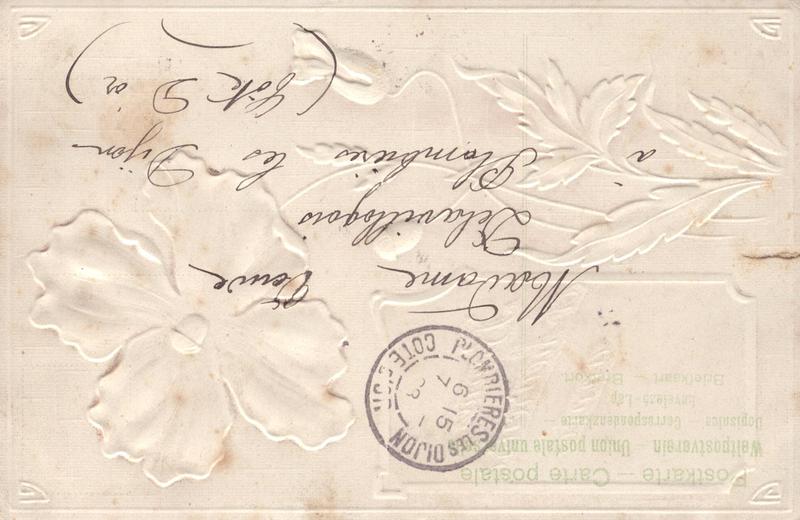 Postkarte — Carte postale
Weltpostverein — Union postale universelle
Dopisnice — Correspondenzkarte
Levelező-Lap
Briefkaart — Brefkort
PLOMBIERES LES DIJON
COTE D'OR
6 15
7
Madame Veuve
Delavillogeois
à Plombières les Dijon
(Côte D'or)